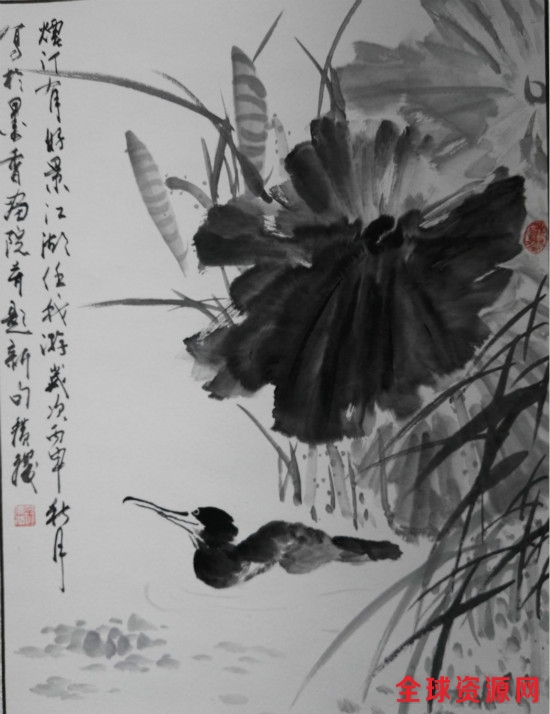 烟汀有好景江湖任我游岁次丙申秋月
写于墨香画院并题新句
全球资源网